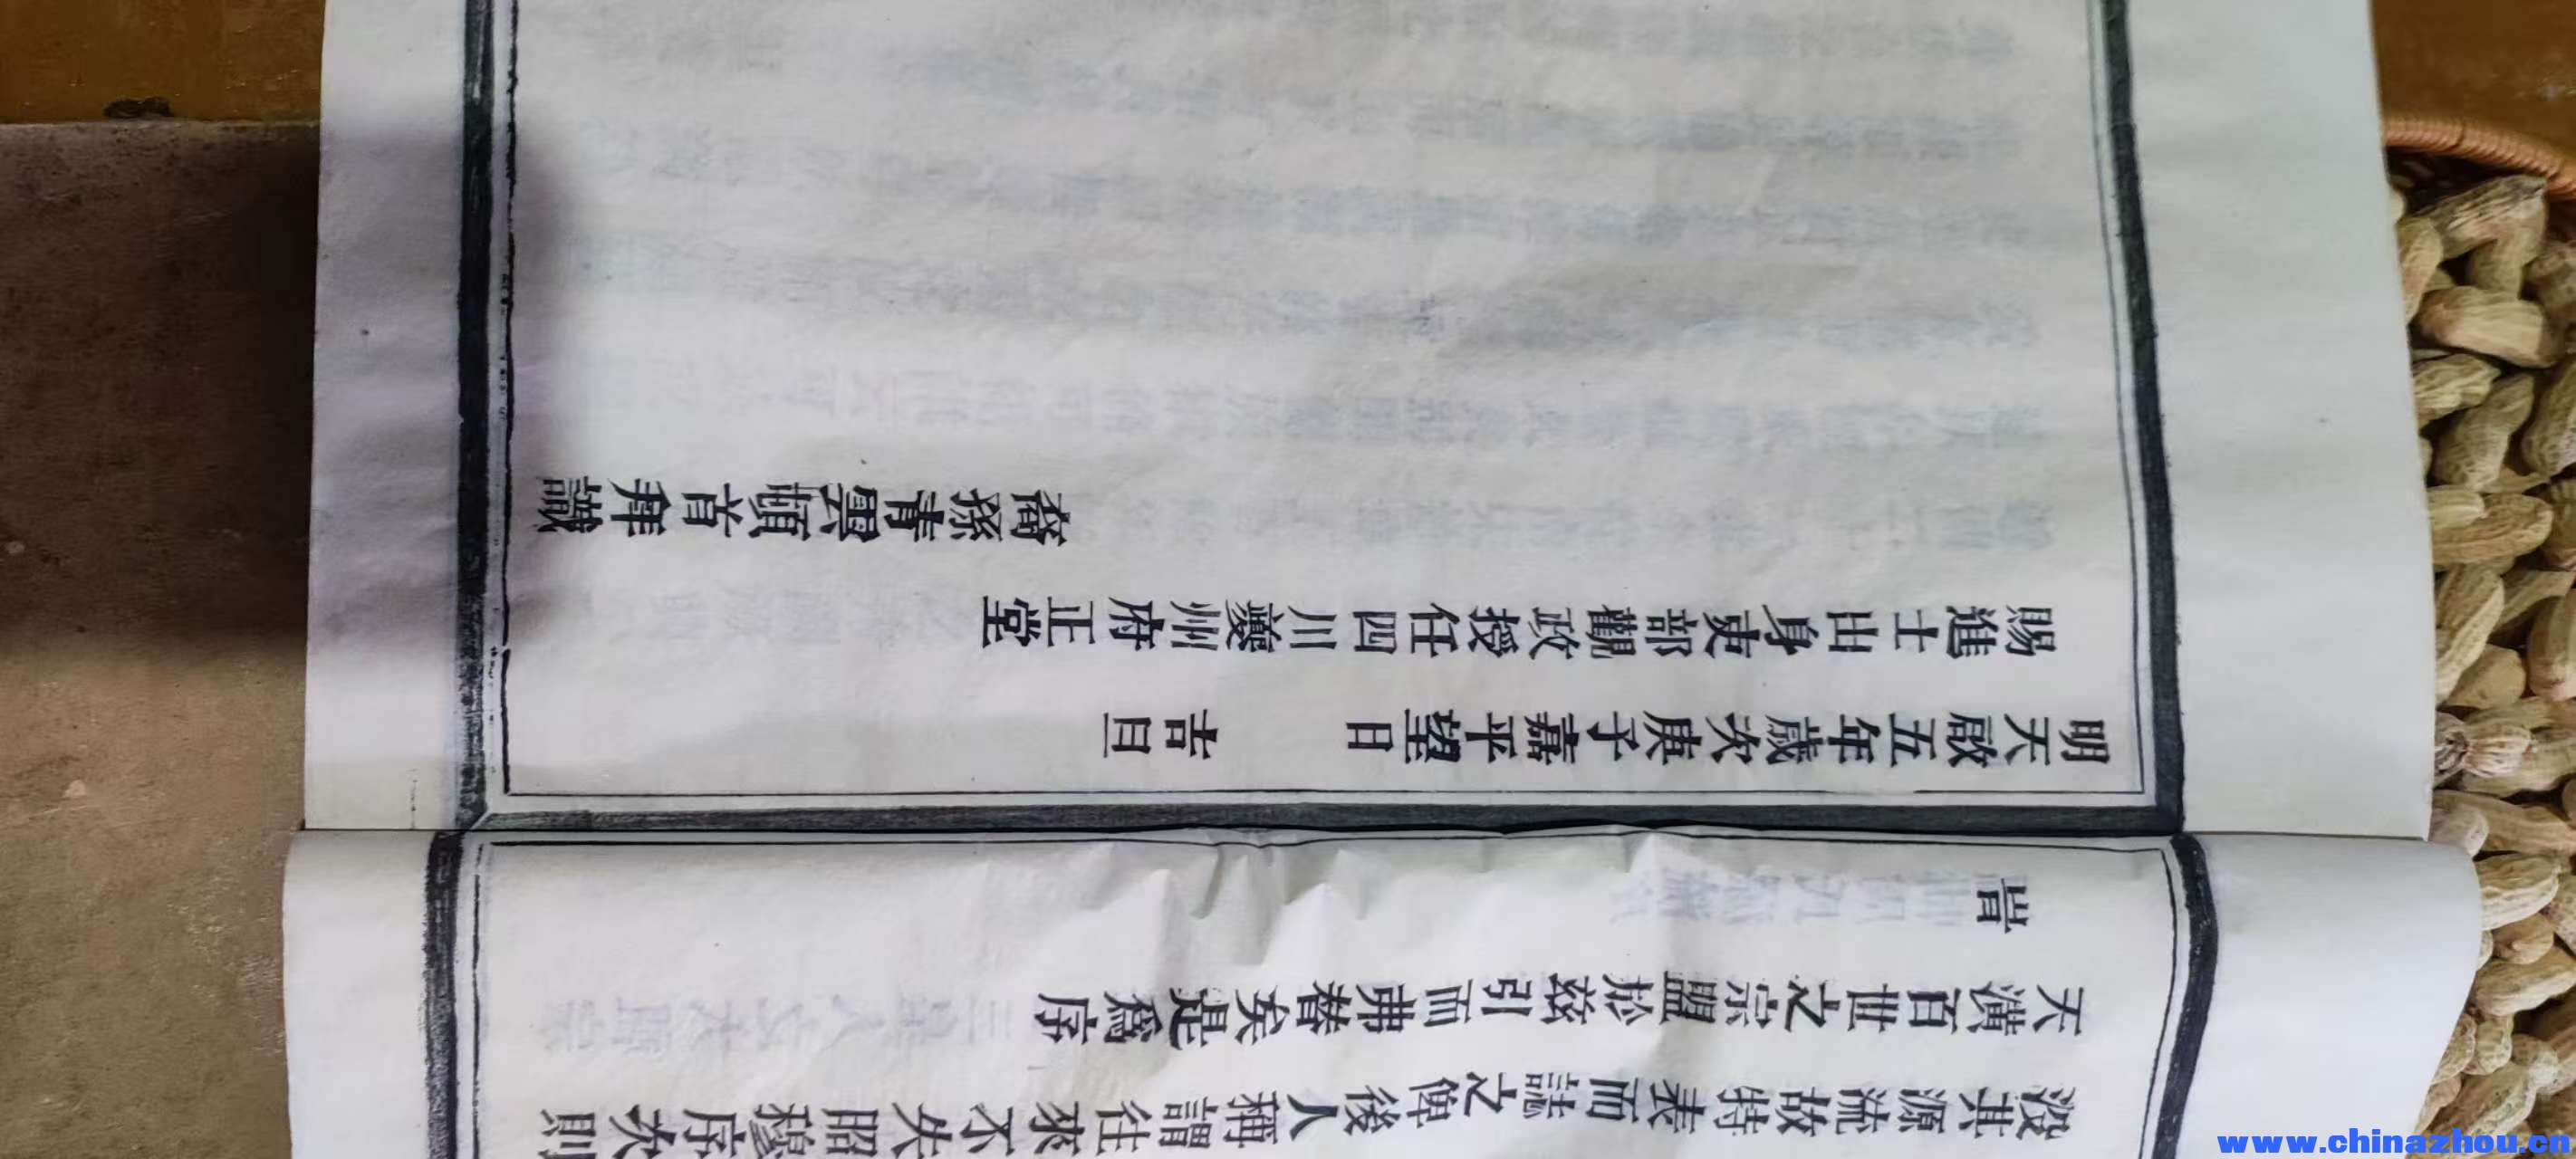 其源流故特表而誌之俾後人稱謂往來不失昭穆序次則
天潢百世之宗盟於茲引而弗替矣是爲序
旹
明天啟五年歲次庚子嘉平望日 吉旦
賜進士出身吏部觀政授任四川夔州府正堂
裔孫青頓首拜識
www.chinazhou.cn